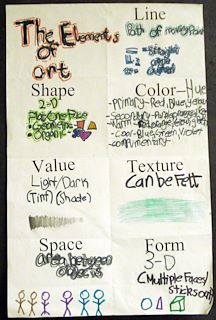 The Elements
of
art
Line
Path of moving Point
Straight
Shape
2-D
Flat One Face
• Geometric
• Organic
Color-Hue
-Primary-Red, Blue, Yellow
-Secondary-
Warm-
-Cool-Blue, Green, Violet
-complimentary-
Value
Light/Dark
(Tint) (Shade)
Texture
Can be Felt
Space
area between
objects
Form
3-D
(Multiple Faces/
sticks out)